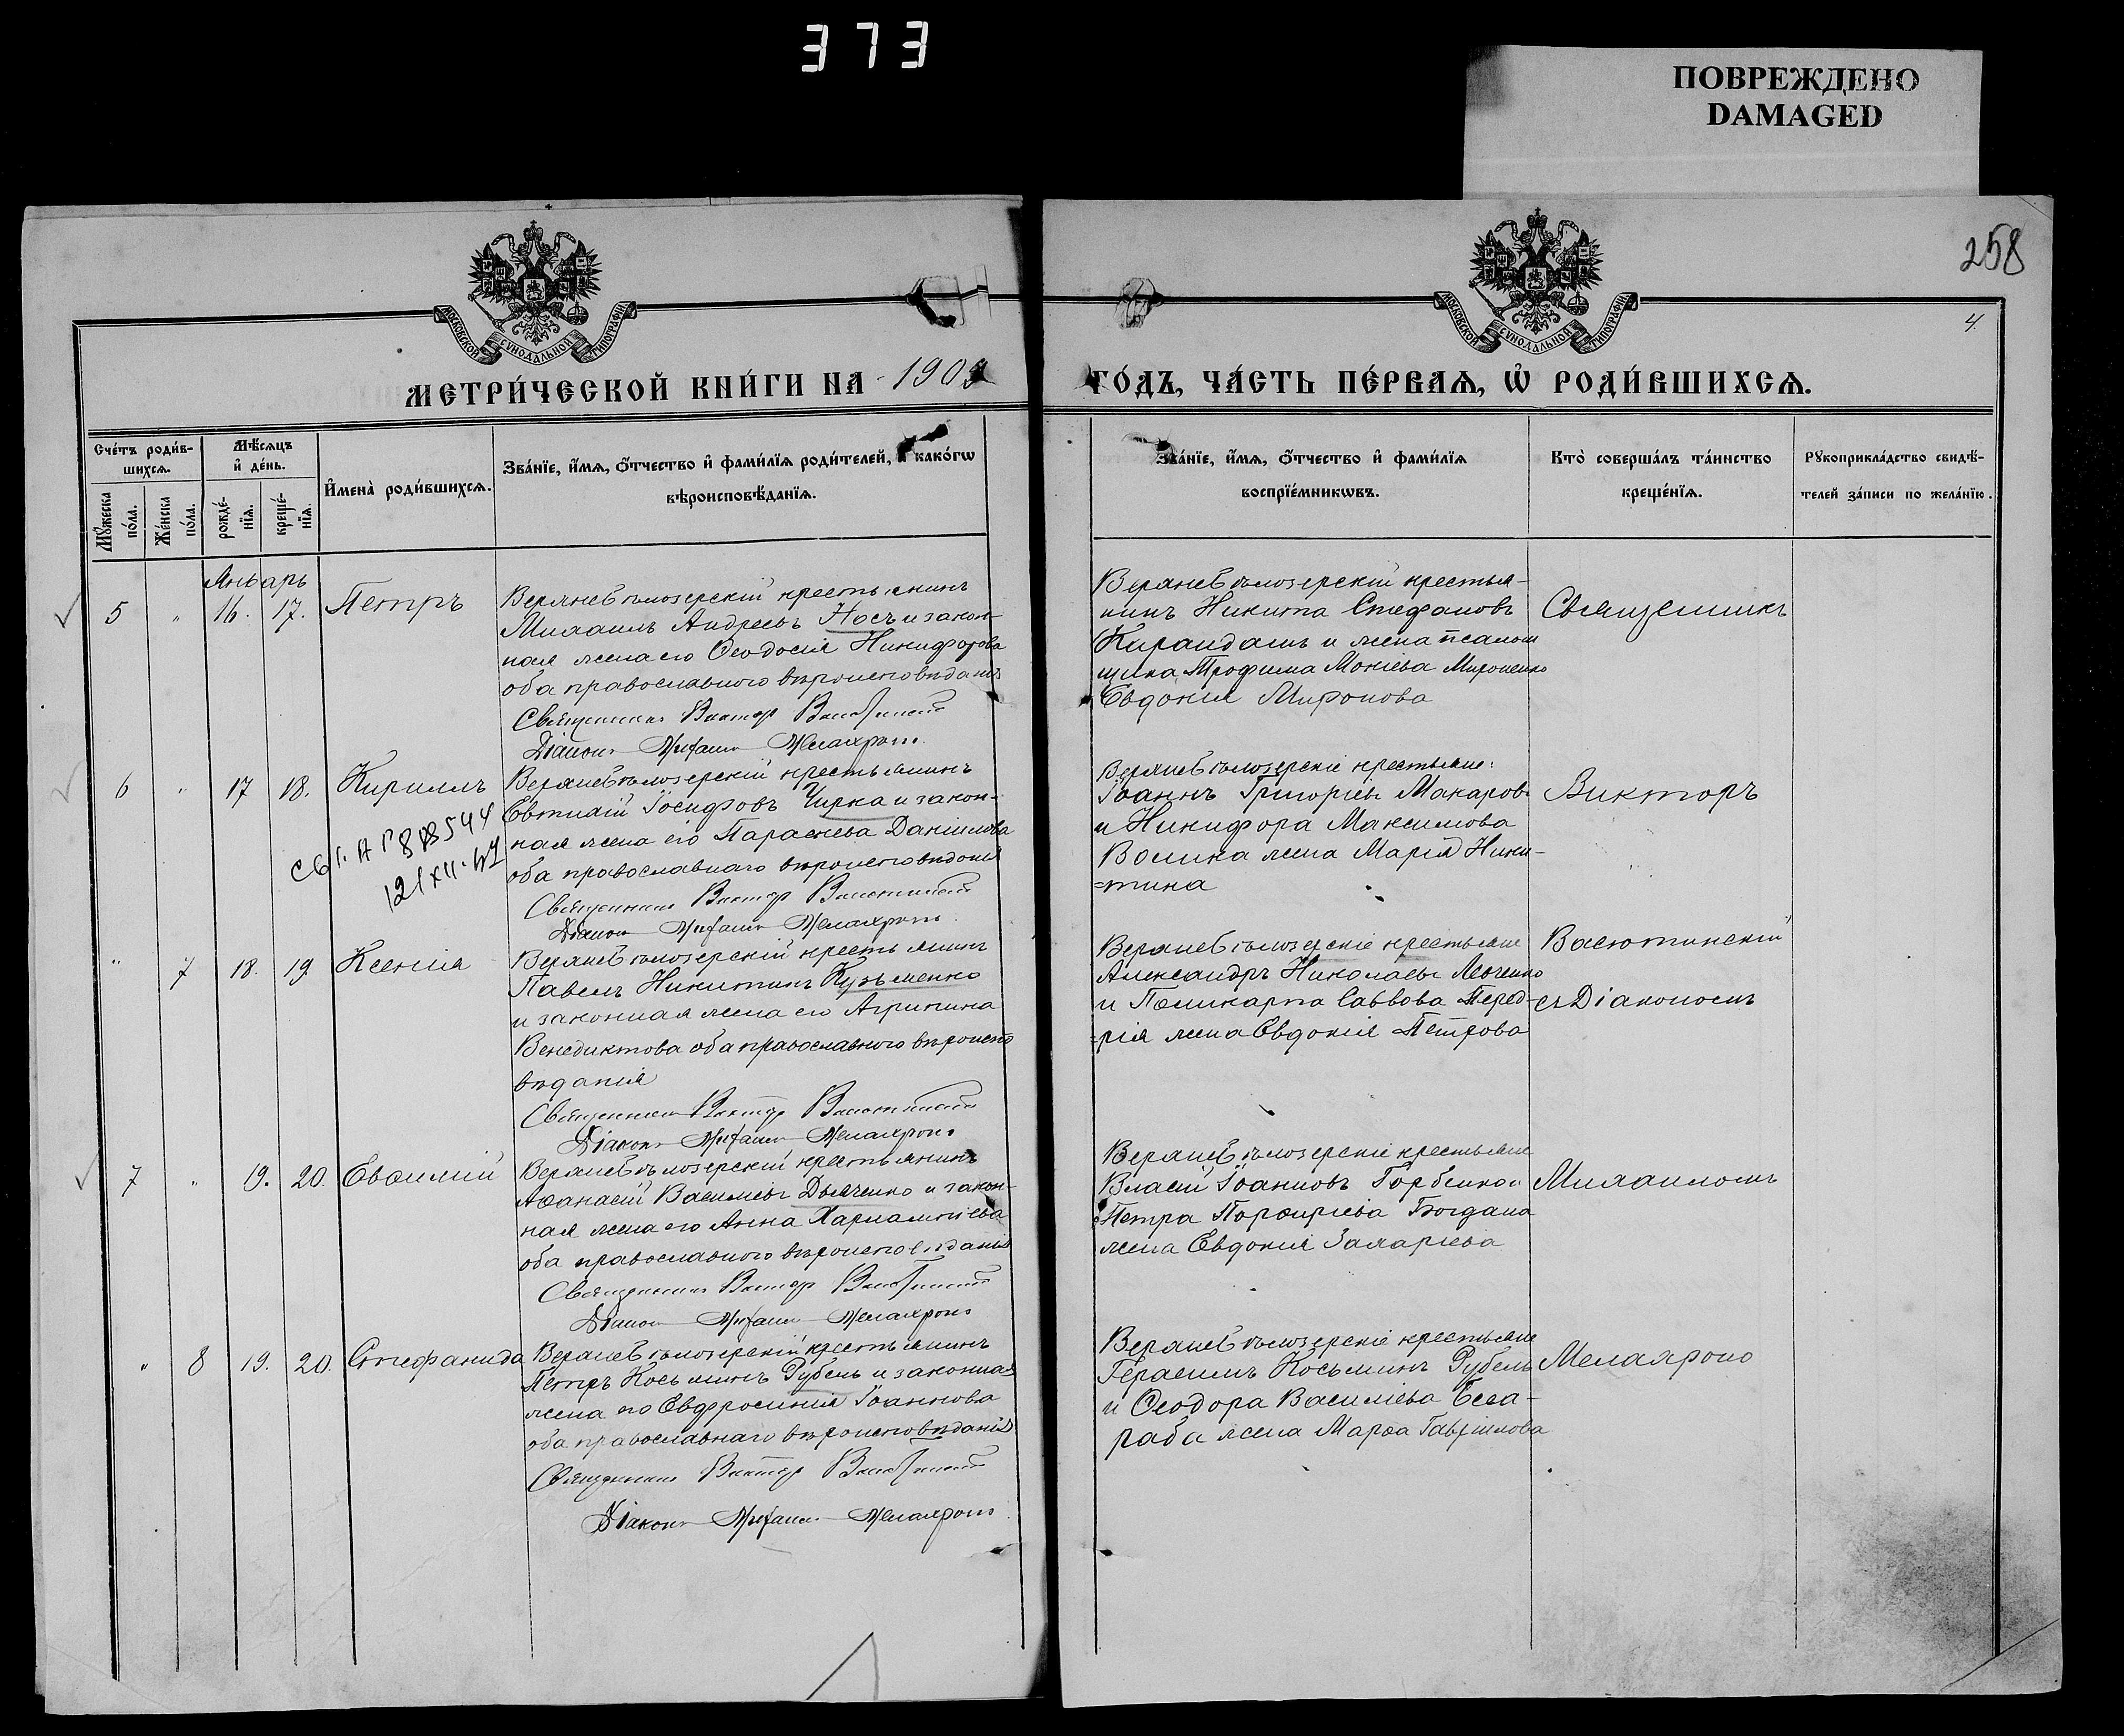 373
ПОВРЕЖДЕНО
DAMAGED
258
4.
МОСКОВСКОЙ СѴНОДАЛЬНОЙ ТИПОГРАФІИ
МОСКОВСКОЙ СѴНОДАЛЬНОЙ ТИПОГРАФІИ
МЕТРИ́ЧЕСКОЙ КНИ́ГИ НА 1909
ГО́ДЪ, ЧА́СТЬ ПЕ́РВАѦ, Ѡ҆ РОДИ́ВШИХСѦ.
Сче́тъ роди́в-
шихсѧ.
Мѣ́сѧцъ
и҆ де́нь.
Мꙋ́жеска
по́ла.
Же́нска
по́ла.
рожде́-
нїѧ.
креще́-
нїѧ.
И҆мена̀ роди́вшихсѧ.
Зва́нїе, и҆́мѧ, ѻ҆́тчество и҆ фами́лїѧ роди́телей, и҆ како́гѡ
вѣроисповѣ́данїѧ.
Зва́нїе, и҆́мѧ, ѻ҆́тчество и҆ фами́лїѧ
воспрїе́мникѡвъ.
Кто̀ соверша́лъ та́инство
креще́нїѧ.
Рꙋкоприкла́дство свидѣ́-
телей за́писи по жела́нїю.
Январь
5 " 16. 17. Петръ
Верхнебѣлозерскій крестьянинъ
Михаилъ Андреевъ Носъ и закон-
ная жена его Ѳеодосія Никифорова
оба православного вѣроисповѣданія
Священникъ Викторъ Васютинскій
Діаконъ Михаилъ Мелахроно
Верхнебѣлозерскій крестья-
нинъ Никита Стефановъ
и жена псаломщика Трофима Мироненко
Евдокія Миронова
Священникъ
6 " 17 18. Кириллъ
Верхнебѣлозерскій крестьянинъ
Евтихій Іосифовъ Чирка и закон-
ная жена его Параскева Даніилова
оба православнаго вѣроисповѣданія
Священникъ Викторъ Васютинскій
Діаконъ Михаилъ Мелахроно
12/XII
Верхнебѣлозерскіе крестьяне:
Іоаннъ Григорьевъ Макаровъ
и Никифора Максимова
Волика жена Марія Ники-
=тина
Викторъ
" 7 18. 19. Ксенія
Верхнебѣлозерскій крестьянинъ
Павелъ Никитинъ Кузьменко
и законная жена его Агрипина
Венедиктова оба православного вѣроиспо
вѣданія
Священникъ Викторъ Васютинскій
Діаконъ Михаилъ Мелахроно
Верхнебѣлозерскіе крестьяне
Александръ Николаевъ Левченко
и Поликарпа Саввова Перед-
=рія жена Евдокія Петрова
Васютинскій
съ Діакономъ
7 " 19. 20. Евѳимій
Верхнебѣлозерскій крестьянинъ
Аѳанасій Васильевъ Дьяченко и закон-
ная жена его Анна Харлампіева
оба православного вѣроисповѣданія
Священникъ Викторъ Васютинскій
Діаконъ Михаилъ Мелахроно
Верхнебѣлозерскіе крестьяне
Власій Іоанновъ Горбенко и
Петра Порфиріева Богдана
жена Евдокія Захаріева
Михаиломъ
" 8 19. 20. Стефанида
Верхнебѣлозерскій крестьянинъ
Петръ Косьминъ Рубель и законная
жена его Евфросинія Іоаннова
оба православнаго вѣроисповѣданія
Священникъ Викторъ Васютинскій
Діаконъ Михаилъ Мелахроно
Верхнебѣлозерскіе крестьяне
Герасимъ Косьминъ Рубель
и Ѳеодора Василіева Бесса-
раба жена Марѳа Гавріилова
Мелахроно